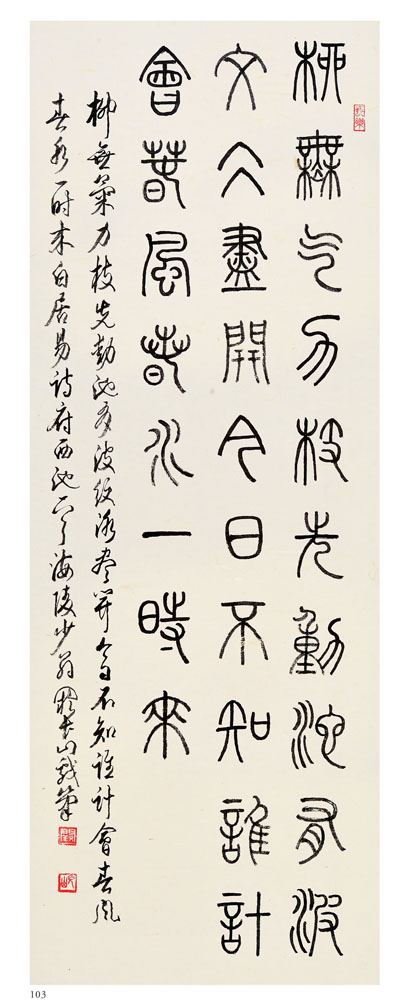 柳無气力枝先動池有波
文仌盡開今日不知誰計
會春風春水一時來
柳無氣力枝先動池有波紋冰盡開今日不知誰計會春風
春水一时來白居易詩府西池海陵少翁山戲筆
103